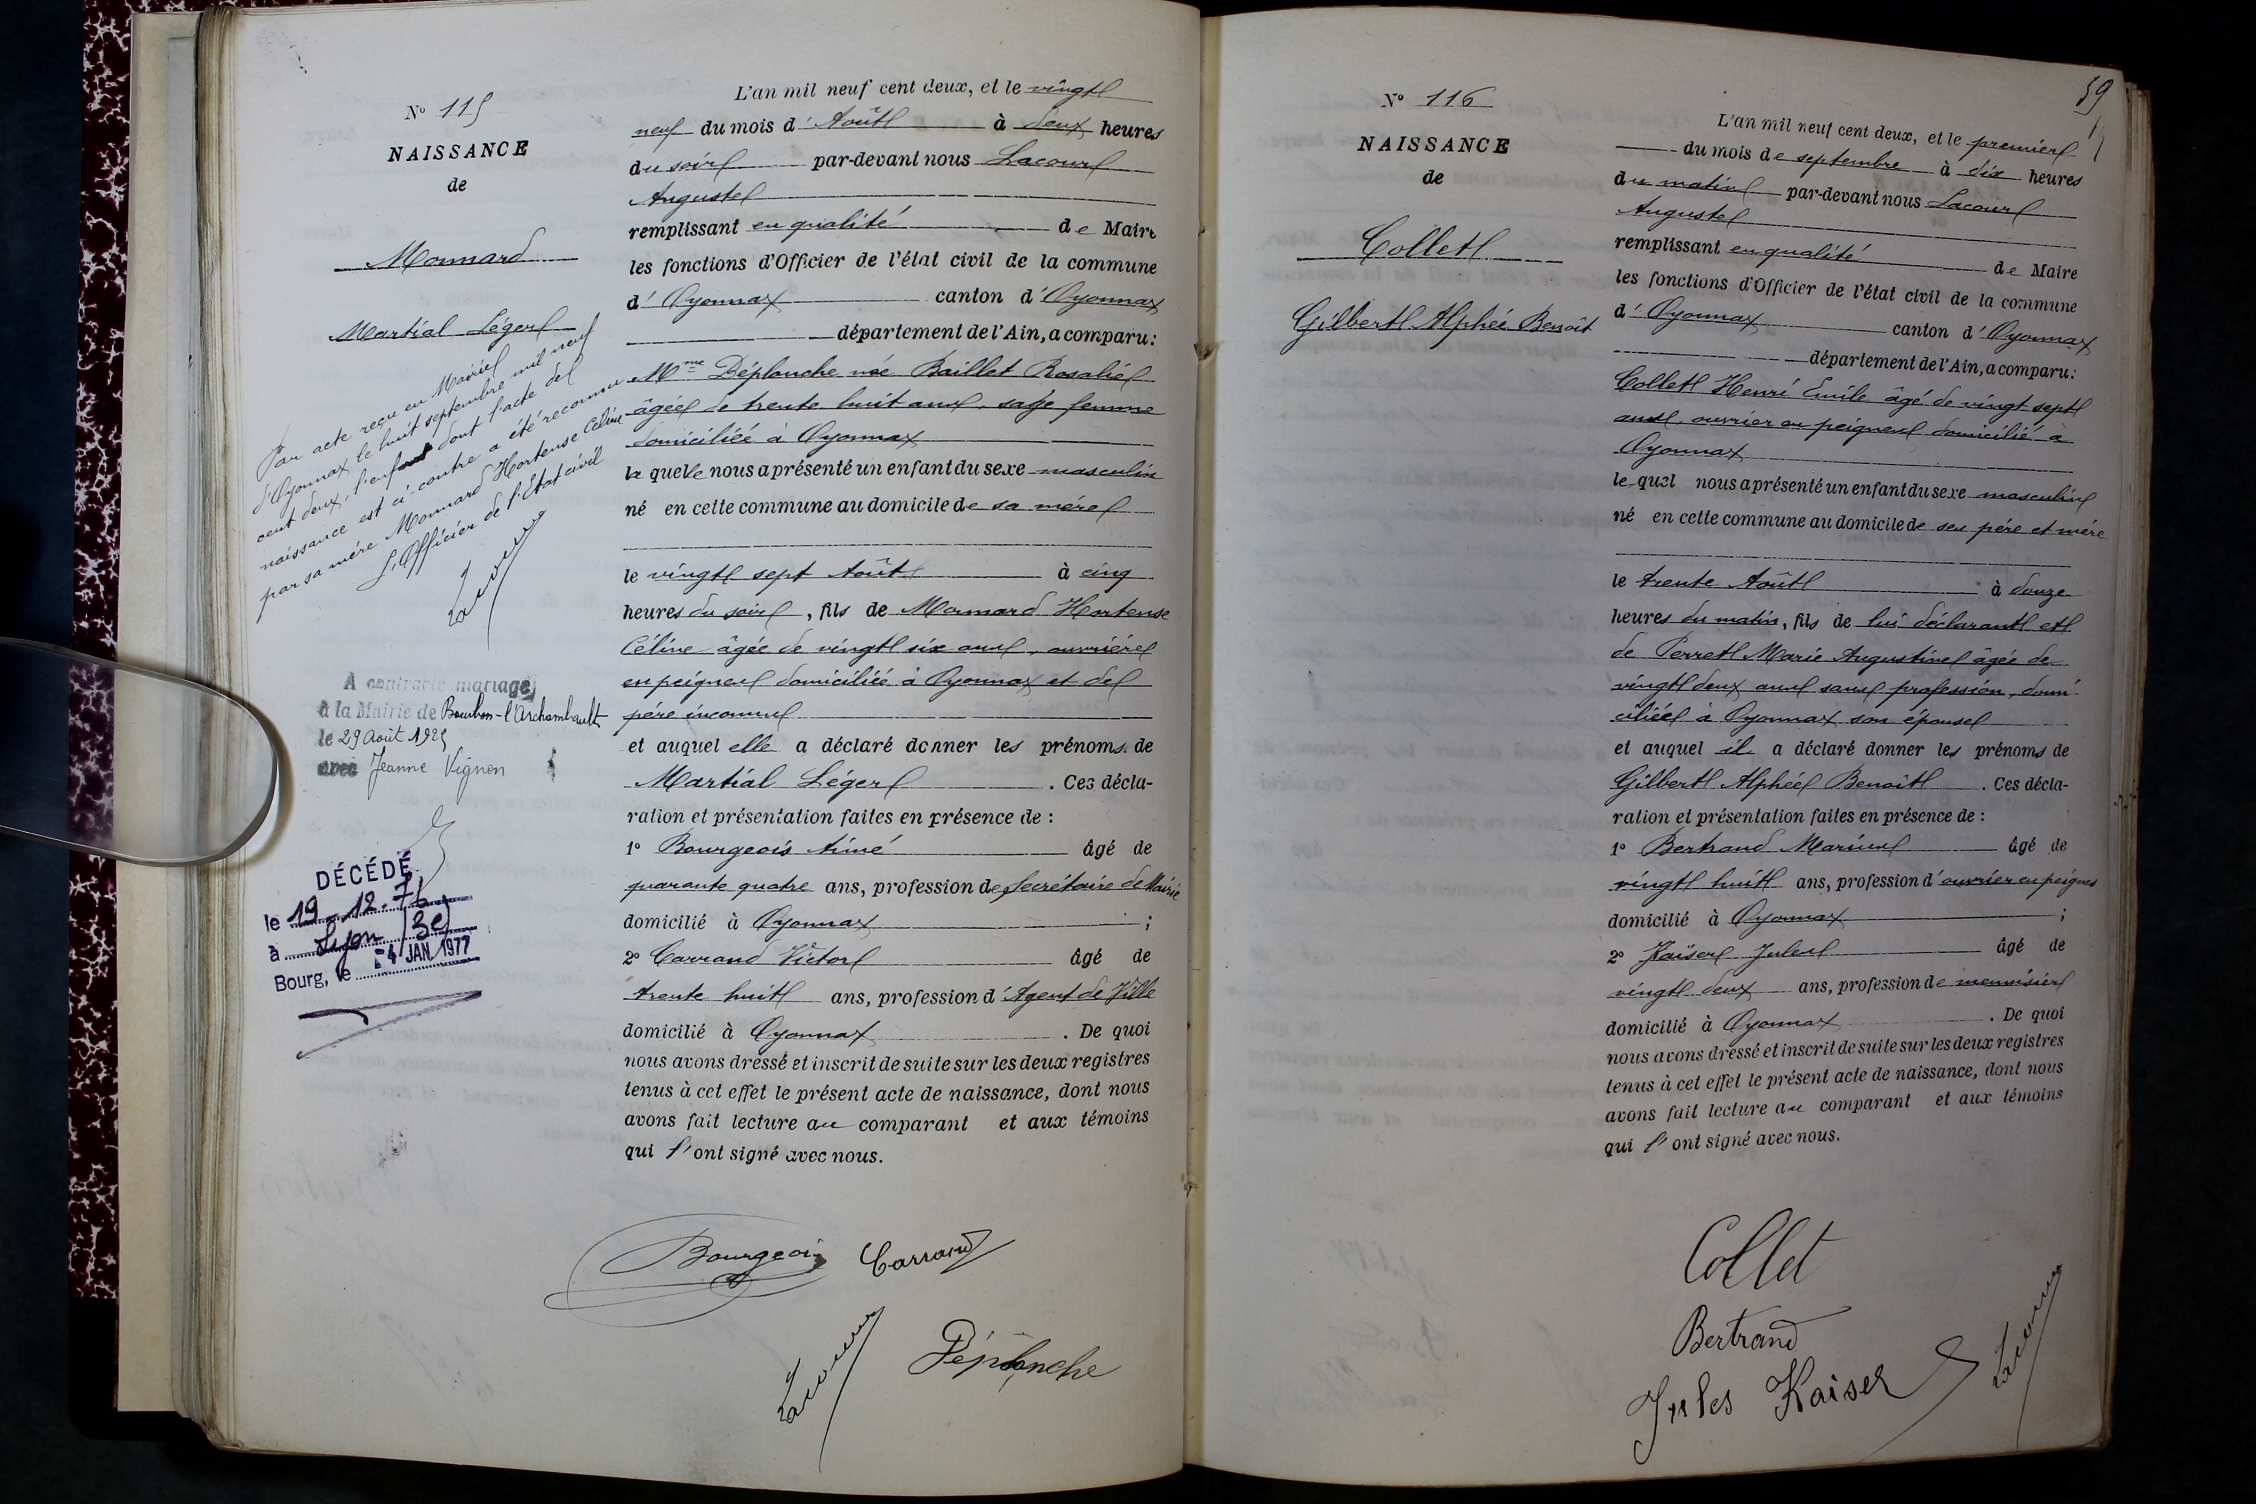 N° 115
NAISSANCE
de
Monnard
Martial Léger
Par acte reçu en Mairie
d'Oyonnax le huit septembre mil neuf
cent deux, l'enfant dont l'acte de
naissance est ci-contre a été reconnu
par sa mère Monnard Hortense Céline
L'Officier de l'État civil
Lacour
A contracté mariage
à la Mairie de Bourbon-l'Archambault
le 29 Août 1925
avec Jeanne Vignon
DÉCÉDÉ
le 19-12-76
à Lyon (3e)
Bourg, le - 4 JAN 1977
L'an mil neuf cent deux, et le vingt
neuf du mois d'Août à deux heures
du soir par-devant nous Lacour
Auguste
remplissant en qualité de Maire
les fonctions d'Officier de l'état civil de la commune
d'Oyonnax canton d'Oyonnax
département de l'Ain, a comparu:
Mme Déplanche née Baillet Rosalie
âgée de trente huit ans, sage femme
domiciliée à Oyonnax
la quelle nous a présenté un enfant du sexe masculin
né en cette commune au domicile de sa mère
le vingt sept Août à cinq
heures du soir, fils de Monnard Hortense
Céline âgée de vingt six ans, ouvrière
en peignes domiciliée à Oyonnax et de
père inconnu
et auquel elle a déclaré donner les prénoms de
Martial Léger. Ces décla-
ration et présentation faites en présence de :
1° Bourgeois Aimé âgé de
quarante quatre ans, profession de Secrétaire de Mairie
domicilié à Oyonnax ;
2° Carrand Victor âgé de
trente huit ans, profession d'Agent de Ville
domicilié à Oyonnax. De quoi
nous avons dressé et inscrit de suite sur les deux registres
tenus à cet effet le présent acte de naissance, dont nous
avons fait lecture au comparant et aux témoins
qui l'ont signé avec nous.
Bourgeois Carrand
Lacour Déplanche
59
N° 116
NAISSANCE
de
Collet
Gilbert Alphée Benoit
L'an mil neuf cent deux, et le premier
du mois de septembre à dix heures
du matin par-devant nous Lacour
Auguste
remplissant en qualité de Maire
les fonctions d'Officier de l'état civil de la commune
d'Oyonnax canton d'Oyonnax
département de l'Ain, a comparu:
Collet Henri Emile âgé de vingt sept
ans, ouvrier en peignes domicilié à
Oyonnax
le quel nous a présenté un enfant du sexe masculin
né en cette commune au domicile de ses père et mère
le trente Août à douze
heures du matin, fils de lui déclarant et
de Perret Marie Augustine âgée de
vingt deux ans sans profession, domi-
ciliée à Oyonnax son épouse
et auquel il a déclaré donner les prénoms de
Gilbert Alphée Benoît. Ces décla-
ration et présentation faites en présence de :
1° Bertrand Marius âgé de
vingt huit ans, profession d'ouvrier en peignes
domicilié à Oyonnax ;
2° Kaiser Jules âgé de
vingt deux ans, profession de menuisier
domicilié à Oyonnax. De quoi
nous avons dressé et inscrit de suite sur les deux registres
tenus à cet effet le présent acte de naissance, dont nous
avons fait lecture au comparant et aux témoins
qui l'ont signé avec nous.
Collet
Bertrand
Jules Kaiser Lacour